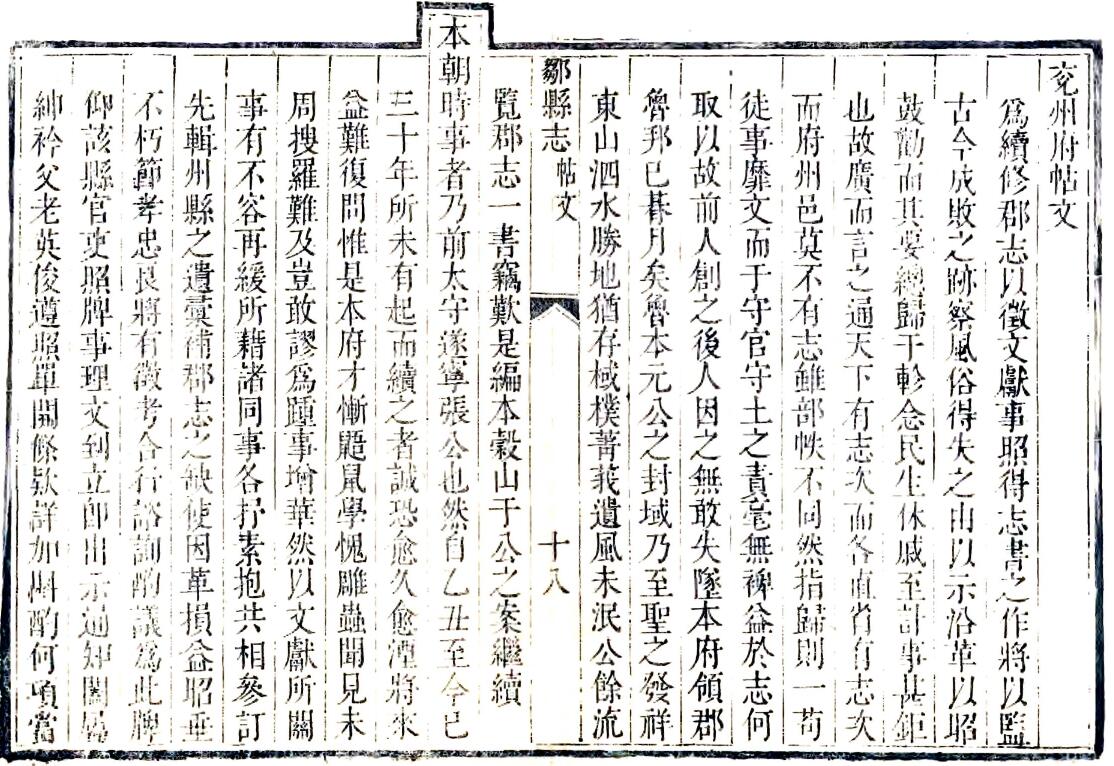 兖州府帖文
爲續修郡志以徵文獻事照得志書之作將以監
古今成敗之跡察風俗得失之由以示沿革以昭
鼓勸而其要總歸于軫念民生休戚至計事甚鉅
也故廣而言之通天下有志次而各直省有志次
而府州邑莫不有志雖部帙不同然指歸則一苟
徒事靡文而于守官守土之責毫無裨益於志何
取以故前人創之後人因之無敢失墜本府領郡
魯邦已朞月矣魯本元公之封域乃至聖之發祥
東山泗水勝地猶存棫樸菁莪遺風未泯公餘流
鄒縣志 帖文 十八
覽郡志一書竊歎是編本穀山于公之案繼續
本朝時事者乃前太守遂寧張公也然自乙丑至今已
三十年所未有起而續之者誠恐愈久愈湮將來
益難復問惟是本府才慚鼯鼠學愧雕蟲聞見未
周搜羅難及豈敢謬爲踵事增華然以文獻所關
事有不容再緩所藉諸同事各抒素抱共相參訂
先輯州縣之遺彙補郡志之缺使因革損益昭垂
不朽節孝忠良將有徵考合行諮詢酌議爲此牌
仰該縣官吏照牌事理文到立卽出示通知闔縣
紳衿父老英俊遵照單開條欵詳加斟酌何項當